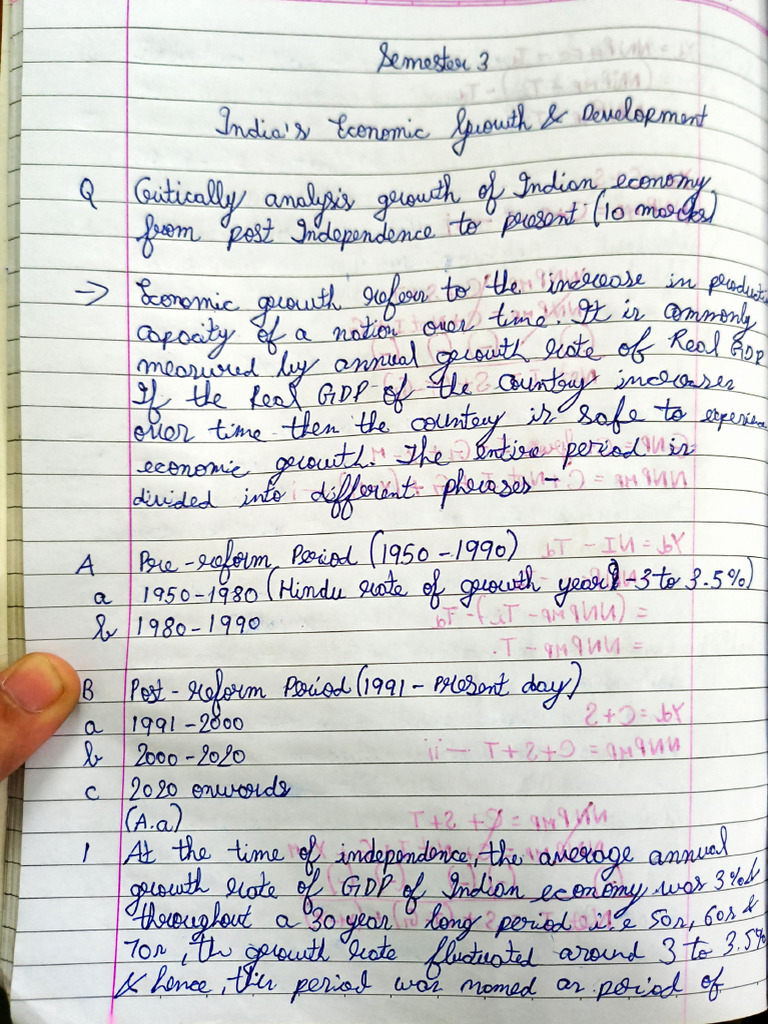 Semester 3
India's Economic Growth & Development
Q Critically analysis growth of Indian economy
from post Independence to present (10 marks)
→ Economic growth refers to the increase in producti
capacity of a nation over time. It is commonly
measured by annual growth rate of Real GDP
If the Real GDP of the country increases
over time then the country is safe to experience
economic growth. The entire period is
divided into different pherases -
A Pre-reform Period (1950-1990)
a 1950-1980 (Hindu rate of growth year - 3 to 3.5%)
b 1980-1990
B Post-reform Period (1991 - Present day)
a 1991-2000
b 2000-2020
c 2020 onwords
(A.a)
1 At the time of independence, the average annual
growth rate of GDP of Indian economy was 3% &
throughout a 30 year long period i.e 50s, 60s &
70s, the growth rate fluctuated around 3 to 3.5%
& hence, this period was named as period of